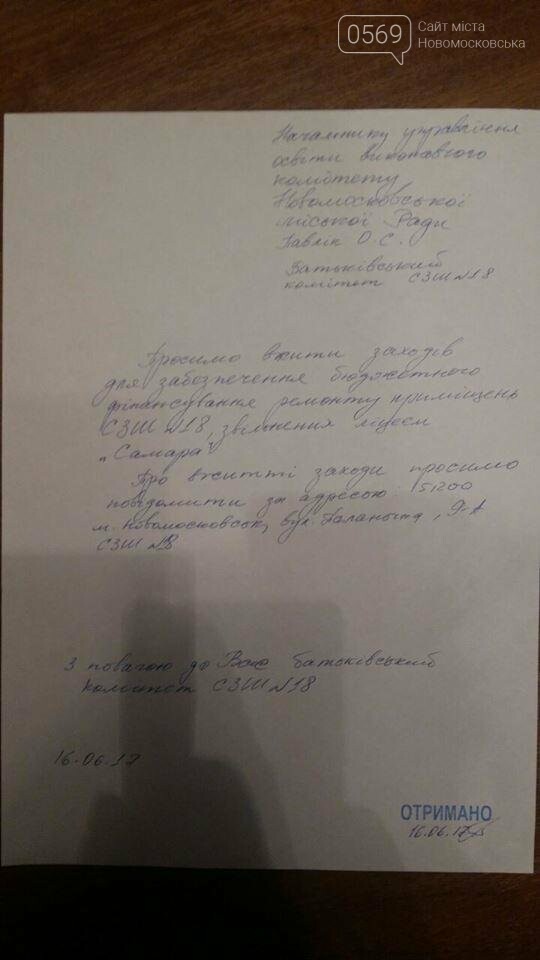 0569
Сайт міста
Новомосковська
Начальнику управління
освіти виконавчого
комітету
Новомосковської
міської Ради
Павлік О.С.
Батьківський
комітет СЗШ №18
Просимо вжити заходів
для забезпечення бюджетного
фінансування ремонту приміщень
СЗШ №18, звільнених ліцеєм
„Самара".
Про вжитті заходи просимо
повідомити за адресою 51200
м. Новомосковськ, вул. Паланкова, 9-А
СЗШ №18
З повагою до Вас батьківський
комітет СЗШ №18
16.06.17
ОТРИМАНО
16.06.17